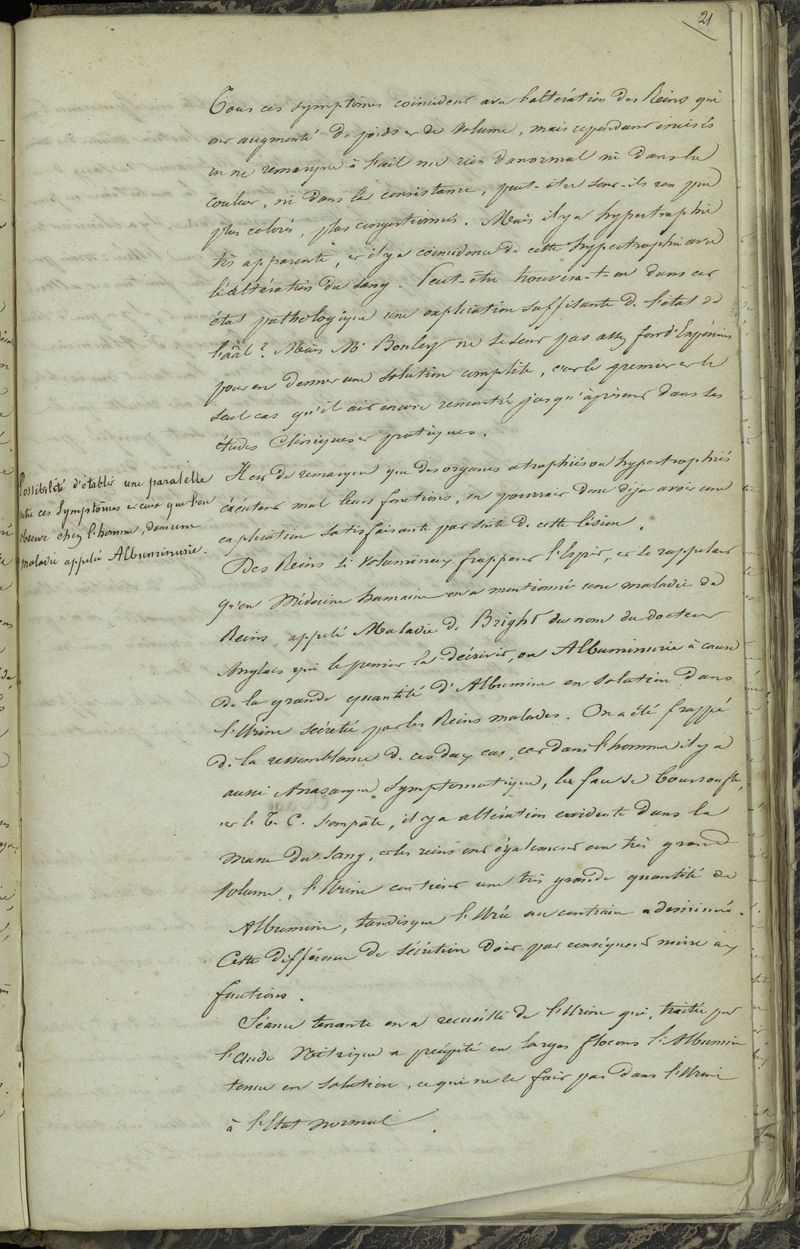 21
Tous ces symptômes coïncident avec l'altération des Reins qui
ont augmenté de poids et de Volume, mais cependant incisés
on ne remarque à l'œil nu rien d'anormal ni dans la
couleur, ni dans la consistance, peut-être sont-ils un peu
plus colorés, plus congestionnés. Mais il y a hypertrophie
très apparente, et il y a coïncidence de cette hypertrophie avec
l'altération du Sang. Peut-être trouvera-t-on dans cet
état pathologique une explication suffisante de l'état de
Mais Mr Bouley ne se sent pas assez fort d'Expérience
pour en donner une solution complète, c'est le premier et le
seul cas qu'il ait encore rencontré jusqu'à présent dans ses
études Cliniques et pratiques.
Possibilité d'établir une paralelle
entre ces Symptômes et ceux que l'on
observe chez l'homme, dans une
maladie appelée Albuminurie.
Il est de remarque que des organes atrophiés ou hypertrophiés
exécutent mal leurs fonctions, on pourrait donc déja avoir une
explication satisfaisante par suite de cette lésion.
Des Reins si Volumineux frappent l'Esprit, et se rappelant
qu'en Médecine humaine on a mentionné une maladie de
Reins, appelé Maladie de Bright du nom du docteur
Anglais qui le premier la décrivit, ou Albuminurie à cause
de la grande quantité d'Albumine en solution dans
l'Urine sécrétée par les Reins malades. On a été frappé
de la ressemblance de ces deux cas, car dans l'homme il y a
aussi Anasarque Symptomatique, la face se boursoufle,
et le T. C. s'empâte, il y a altération évidente dans la
masse du Sang, et les reins ont également un très grand
Volume, l'Urine contient une très grande quantité de
Albumine, tandisque l'Urée au contraire a diminué.
Cette différence de sécrétion doit par conséquent nuire aux
fonctions.
Séance tenante on a recueilli de l'Urine qui, traitée par
l'acide Nitrique a précipité en larges flocons l'Albumine
tenue en solution, ce qui ne se fait pas dans l'Urine
à l'Etat normal.